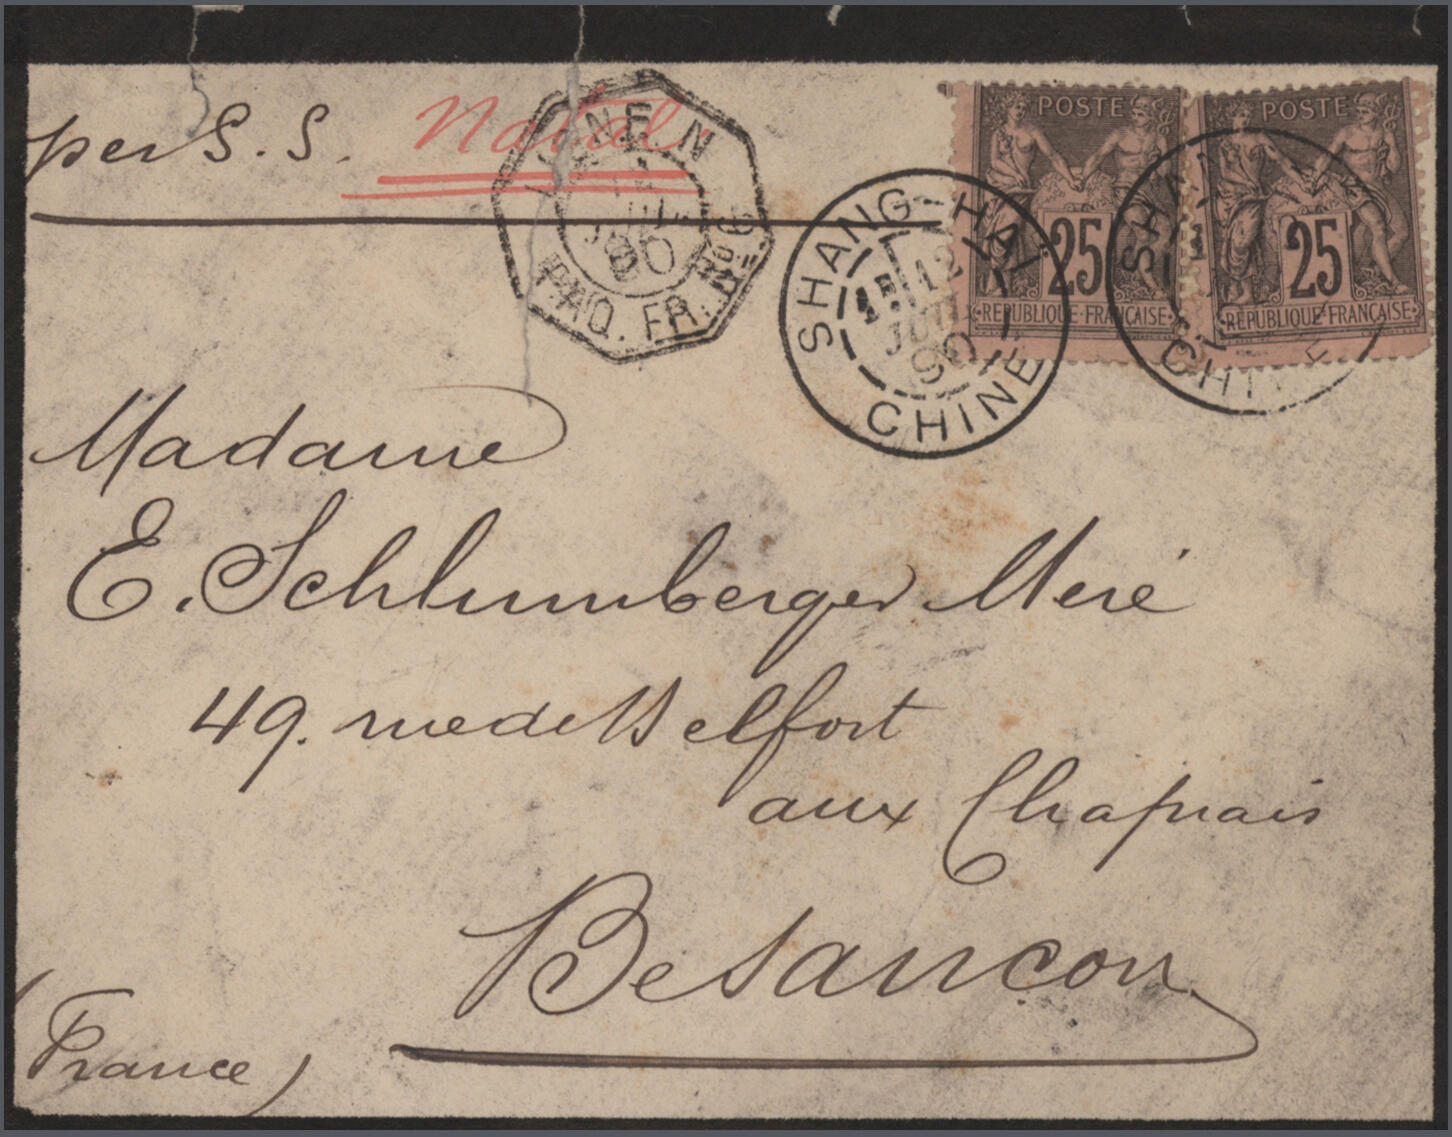 per S. S. Natal
LIGNE N
JUIL
90
PAQ. FR. Nº 6
SHANG-HAÏ
12
JUIL
90
CHINE
POSTE
25
REPUBLIQUE FRANÇAISE
SHA
CHINE
POSTE
25
REPUBLIQUE FRANÇAISE
Madame
E. Schlumberger Meré
49. rue de Belfort
aux Chaprais
Besançon
(France)